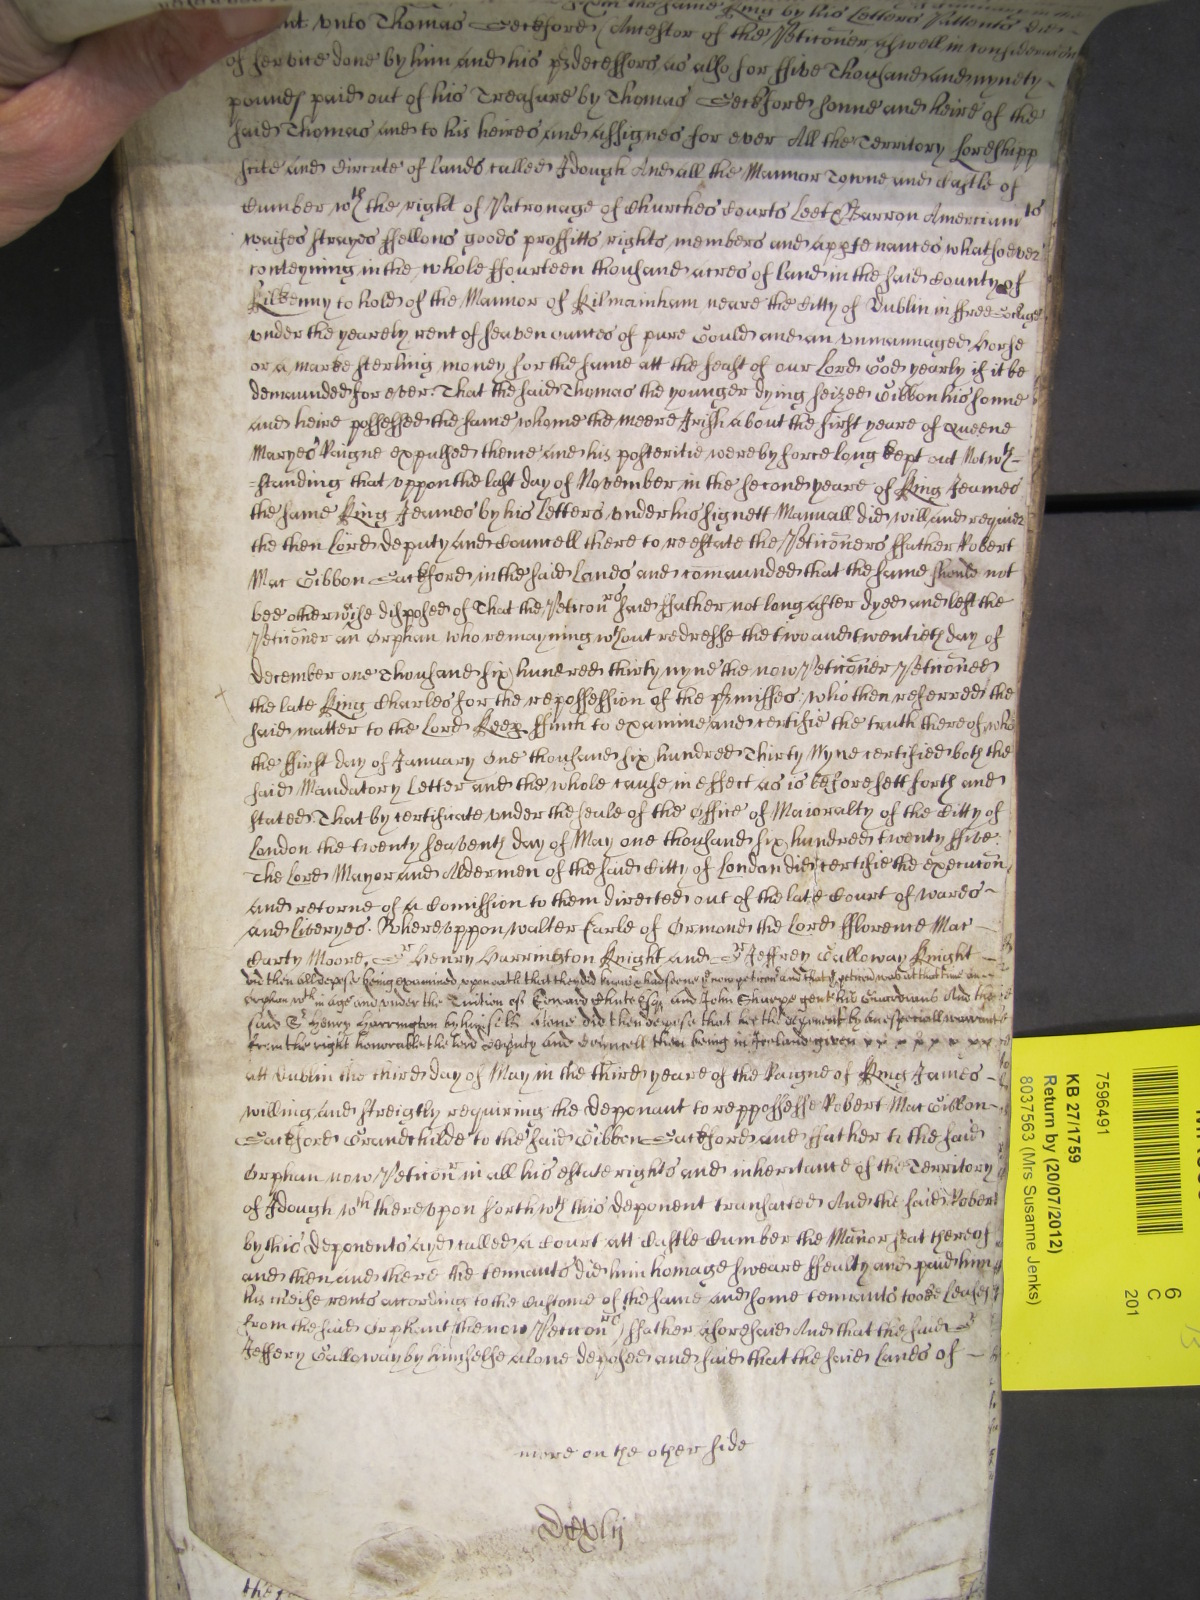 from the same King by his Letters Pattents
unto Thomas Seckford Ancestor of the Peticoner aswell in consideracon
of service done by him and his p̱decessors as also for ffive Thousand and nynety
pounds paid out of his Treasure by Thomas Seckford sonne and heire of the
said Thomas and to his heires and assignes for ever All the Territory Lordshipp
scite and Circute of lands called Idough And all the Mannor Towne and Castle of
Cumber wth the right of Patronage of Churches Courts Leet & Barron Amerciam̄ts
waifes strayes ffellons goods proffitts rights members and apprtenances whatsoever
conteyning in the whole ffourteen thousand acres of land in the said County of
Kilkenny to hold of the Mannor of Kilmainham neare the Citty of Dublin in ffree Socage
under the yearely rent of seaven ounces of pure Gould and an unmannaged horse
or a marke sterling money for the same att the feast of our Lord God yearly if it be
demaunded for ever. That the said Thomas the younger dying seized Gibbon his sonne
and heire possessed the same whome the meere Irish about the first yeare of Queene
Maryes Raigne expulsed thence and his posteritie were by force long kept out Notwth-
-standing that uppon the last day of November in the second yeare of King Jeames
the same King Jeames by his Letters under his signett Mannuall did will and require
the then Lord deputy and Councell there to reestate the Peticoners ffather Robert
Mac Gibbon Sackford in the said Lands and comaunded that the same should not
bee otherwise disposed of That the Peticonrs said ffather not long after dyed and left the
Peticoner an Orphan who remayning wthout redresse the two and twentieth day of
December one Thousand six hundred thirty nyne the now Peticoner Peticoned
the late King Charles for the repossession of the p̱misses. who then referred the
said matter to the Lord Keep ffinch to examine and certifie the truth thereof who
the ffirst day of January One thousand six hundred Thirty Nyne certified both the
said Mandatory Letter and the whole cause in effect as is before sett forth and
stated. That by certificate under the seale of the Office of Maioralty of the Citty of
London the twenty seaventh day of May one thousand six hundred twenty ffive.
The Lord Mayor and Aldermen of the said Citty of London did certifie the execution
and retorne of a Comission to them directed out of the late Court of wards
and liveryes. Whereuppon walter Earle of Ormond the Lord fflorence Mac
Carty Moore, Sr Henry Harrington Knight and Sr Jeffrey Galloway Knight
did then all depose being examined upon oath that they did know & had seene ye now peticonr and that ye peticonr was at that time an
orphan wthin age and under the Tuition of Edward and John Sharpe gent his Guardians And the
said Sr Henry Harrington by himselfe alone did then depose that hee the deponent by an especiall warrant
from the right honorable the lord deputy and Councell then being in Ireland given x x x x x x x
att Dublin the third day of May in the third yeare of the Raigne of King James
willing and streigtly requiring the deponant to reppossesse Robert Mac Gibbon
Sackford Grandchilde to the said Gibbon Sackford and ffather to the said
Orphan now Peticonr in all his estate rights and inheritance of the Territory
of Idough wch thereupon forthwth this deponent transacted And the said Robert
by this deponents ayd called a Court att Castle Cumber the Manor seat thereof
and then and there the tennants did him homage sweare ffealty and paid him
his cheife rents according to the Custome of the same and some tennants tooke Leases
from the said Orphant the now Peticonrs ffather aforesaid And that the said Sr
Jeffery Galloway by himselfe alone deposed and said that the said Lands of
more on the other side
Dcxlij
7596491
KB 27/1759
Return by (20/07/2012)
8037563 (Mrs Susanne Jenks)
6
C
201